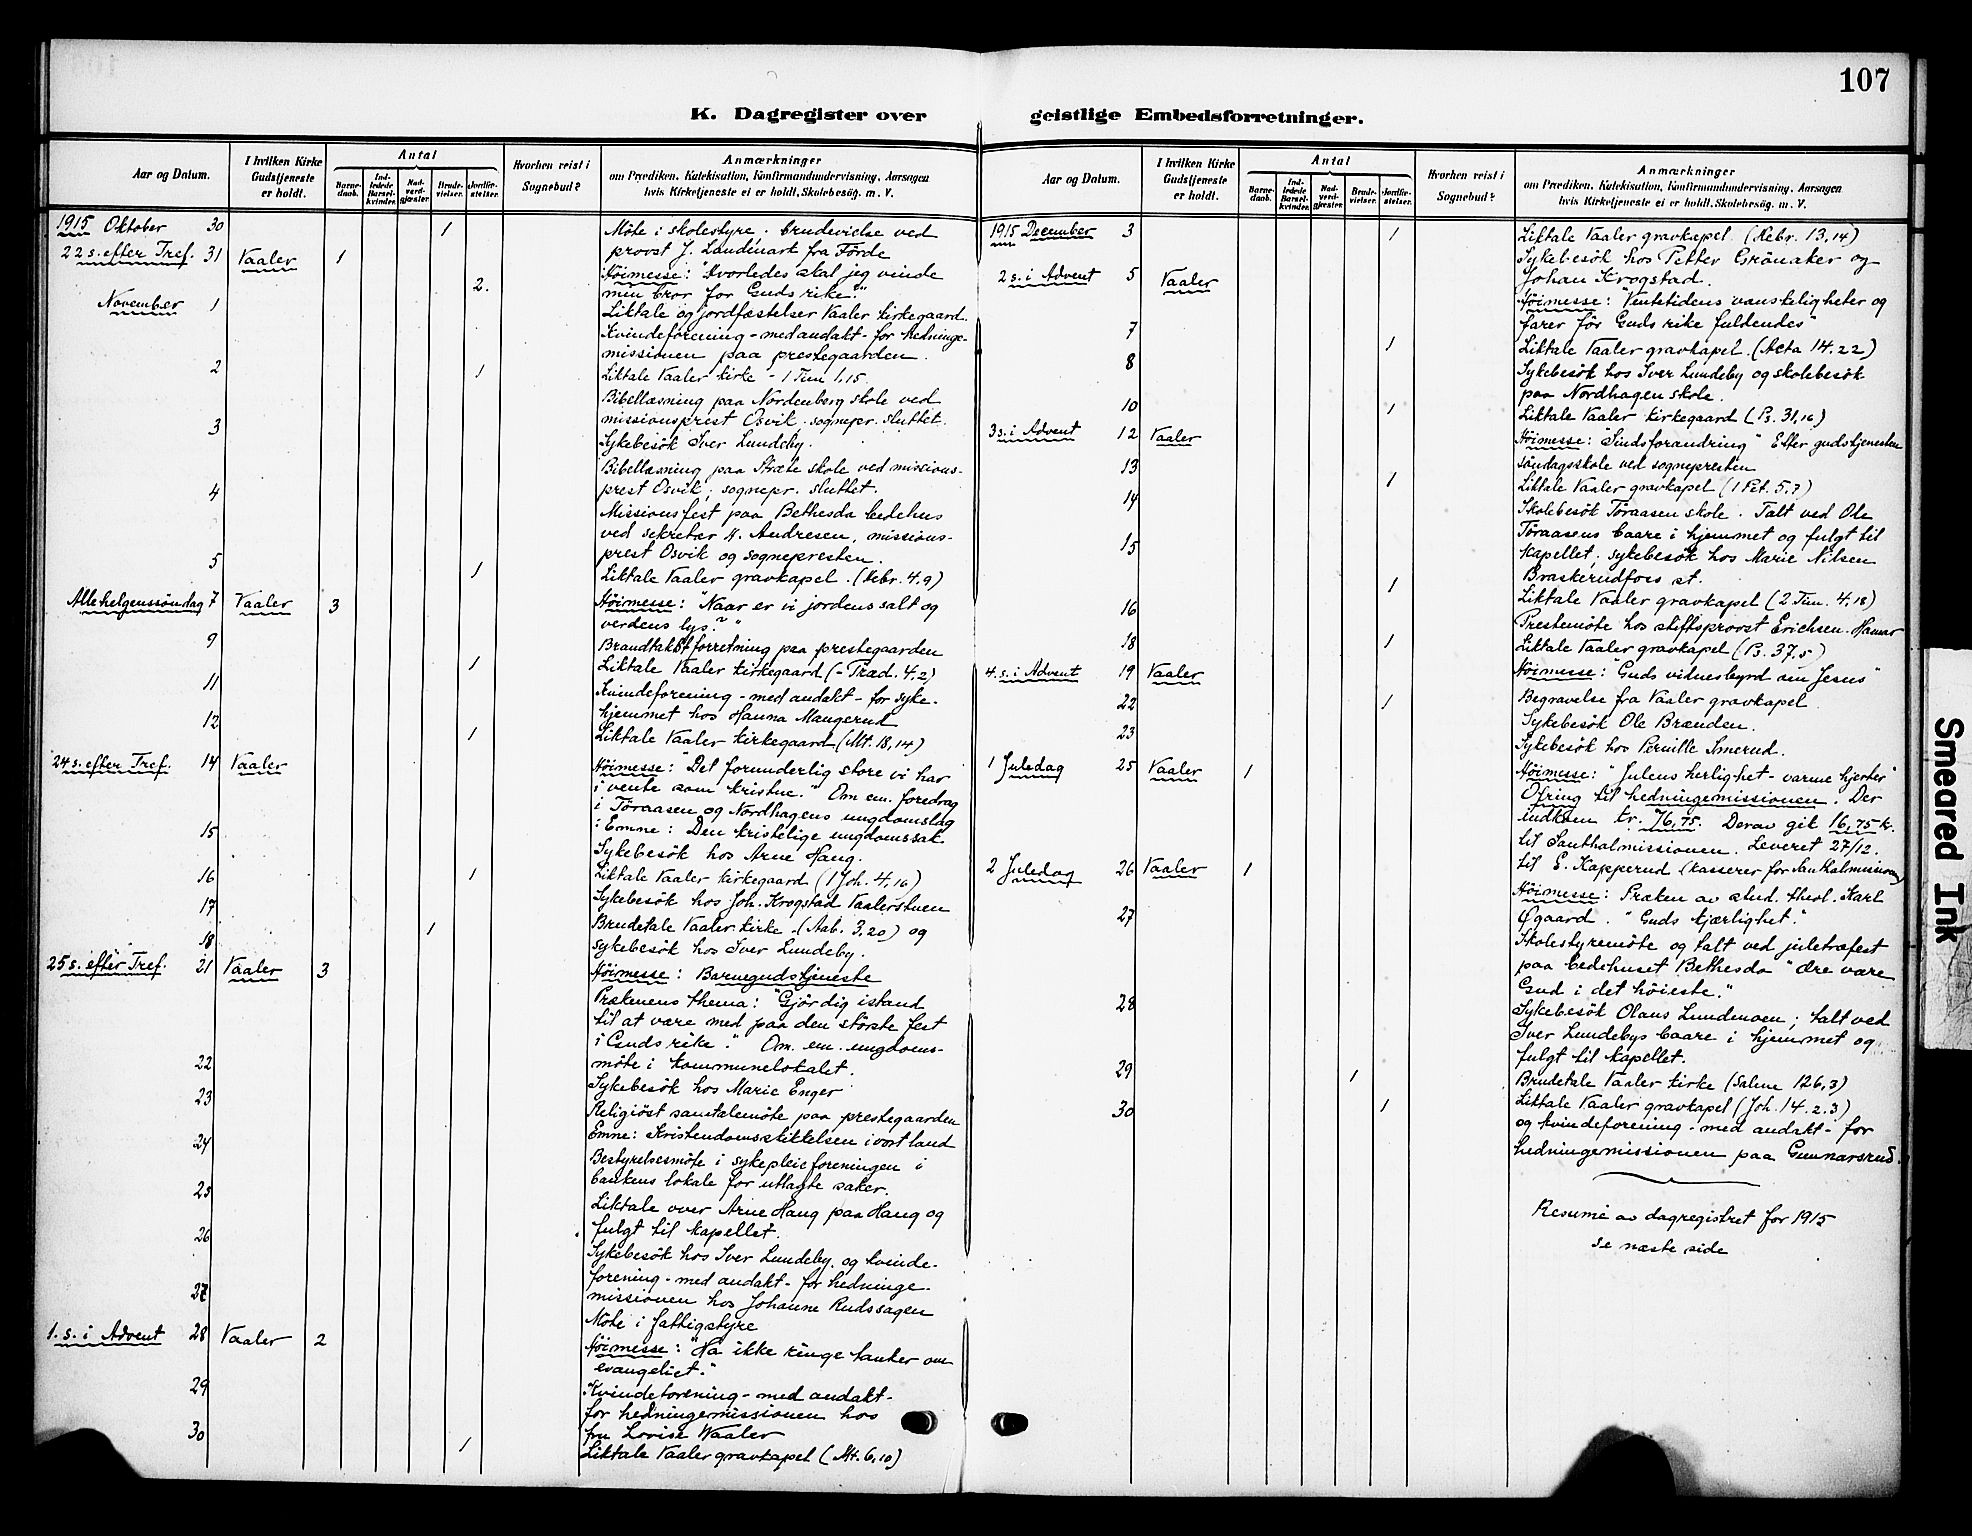 107
K. Dagregister over geistlige Embedsforretninger.
Aar og Datum.
I hvilken Kirke Gudstjeneste er holdt.
Antal
Barnedaab.
Indledede Barselkvinder.
Nadverdgjæster.
Brudevielser.
Jordfæstelser.
Hvorhen reist i Sognebud?
Anmærkninger
om Prædiken, Katekisation, Konfirmandundervisning, Aarsagen
hvis Kirketjeneste ei er holdt, Skolebesøg. m. V.
1915 Oktober 30 1 Möte i skolestyre. brudevielse ved
provst J. fra Förde
22 s. efter Tref. 31 Vaaler 1 Höimesse: "Hvorledes skal jeg vinde
2. min bror for Guds rike?"
November 1 Liktale og jordfæstelser Vaaler kirkegaard.
Kvindeforening - med andakt - for hedninge-
missionen paa prestegaarden.
2 1 Liktale Vaaler kirke - 1 Tim 1,15.
Bibellæsning paa Nordenberg skole ved
missionsprest Osvik. sognepr. sluttet.
3 Sykebesök Iver Lundeby.
Bibellæsning paa skole ved missions-
prest Osvik; sognepr. sluttet.
4 Missionsfest paa Bethesda bedehus
ved sekretær H. Andresen, missions-
prest Osvik og sognepresten.
5 1 Liktale Vaaler gravkapel. (Hebr. 4,9)
Allehelgenssöndag 7 Vaaler 3 Höimesse: "Naar er vi jordens salt og
verdens lys?"
9 Brandtakstforretning paa prestegaarden
1 Liktale Vaaler kirkegaard (- Præd. 4,2)
11 Kvindeforening - med andakt - for syke-
hjemmet hos Hanna Maugerud
12 1 Liktale Vaaler kirkegaard (Mt. 18,14)
24 s. efter Tref. 14 Vaaler Höimesse: "Det forunderlig store vi har
i vente som kristne." Om em. foredrag
i Töraasen og Nordhagens ungdomslag
15 : Emne: Den kristelige ungdomssak
Sykebesök hos Arne Haug.
16 1 Liktale Vaaler kirkegaard (1 Joh. 4,16)
17 Sykebesök hos Joh. Krogstad Vaalerstuen
1 Brudetale Vaaler kirke - (Aab. 3,20) og
18 sykebesök hos Iver Lundeby.
25 s. efter Tref. 21 Vaaler 3 Höimesse: Barnegudstjeneste
Prækenens thema: "Gjör dig istand
til at være med paa den störste fest
i Guds rike." Om. em. ungdoms-
22 möte i kommunelokalet.
Sykebesök hos Marie Enger
23 Religiöst samtalemöte paa prestegaarden
Emne: Kristendomsskikkelsen i vort land
24 Bestyrelsesmöte i sykepleieforeningen i
bankens lokale for utlagte saker.
25 Liktale over Arne Haug paa Haug og
fulgt til kapellet.
26 Sykebesök hos Iver Lundeby. og kvinde-
forening - med andakt - for hedninge-
27 missionen hos Johanne Rudssagen
Möte i fattigstyre
1. s. i Advent 28 Vaaler 2 Höimesse: "Ha ikke ringe tanker om
evangeliet."
29 Kvindeforening - med andakt -
for hedningemissionen hos
30 fru Lovise Waaler
1 Liktale Vaaler gravkapel (Mt. 6,10)
Aar og Datum.
I hvilken Kirke Gudstjeneste er holdt.
Antal
Barnedaab.
Indledede Barselkvinder.
Nadverdgjæster.
Brudevielser.
Jordfæstelser.
Hvorhen reist i Sognebud?
Anmærkninger
om Prædiken, Katekisation, Konfirmandundervisning, Aarsagen
hvis Kirketjeneste ei er holdt, Skolebesøg, m. V.
1915 December 3 1 Liktale Vaaler gravkapel. (Hebr. 13,14)
Sykebesök hos Petter Grönaker og
2 s. i Advent 5 Vaaler Johan Krogstad.
Höimesse: "Ventetidens vanskeligheter og
farer för Guds rike fuldendes"
7 1 Liktale Vaaler gravkapel. (Acta 14,22)
8 Sykebesök hos Iver Lundeby og skolebesök
paa Nordhagen skole.
10 1 Liktale Vaaler kirkegaard (Ps. 31,16)
3 s. i Advent 12 Vaaler Höimesse: "Sindsforandring" Efter gudstjenesten
söndagsskole ved sognepresten
13 1 Liktale Vaaler gravkapel (1 Pet. 5,7)
14 Skolebesök Töraasen skole. Talt ved Ole
Töraasens baare i hjemmet og fulgt til
15 kapellet; sykebesök hos Marie Nilsen
Braskerudfoss st.
1 Liktale Vaaler gravkapel (2 Tim. 4,18)
16 Prestemöte hos stiftsprovst Erichsen. Hamar
18 1 Liktale Vaaler gravkapel (Ps. 37,5)
4. s. i Advent 19 Vaaler Höimesse: "Guds vidnesbyrd om Jesus"
22 1 Begravelse fra Vaaler gravkapel
Sykebesök Ole Brænden.
23 Sykebesök hos Pernille Smerud.
1 Juledag 25 Vaaler 1 Höimesse: "Julens herlighet - varme hjerter"
Ofring til hedningemissionen. Der
indkom kr. 76,75. Derav gik 16,75 kr.
til Santhalmissionen. Leveret 27/12.
til E. Kapperud (kasserer for Santhalmissionen)
2 Juledag 26 Vaaler 1 Höimesse: Præken av stud. theol. Karl
Øgaard. "Guds kjærlighet."
27 Skolestyremöte og talt ved juletræfest
paa bedehuset Bethesda "Ære være
Gud i det höieste."
28 Sykebesök Olaus Lundemoen; talt ved
Iver Lundebys baare i hjemmet og
fulgt til kapellet.
29 1 Brudetale Vaaler kirke (Salme 126,3)
30 1 Liktale Vaaler gravkapel (Joh. 14,2,3)
og kvindeforening - med andakt - for
hedningemissionen paa Gunnarsrud.
Resumé av dagregistret for 1915
se næste side
Smeared Ink